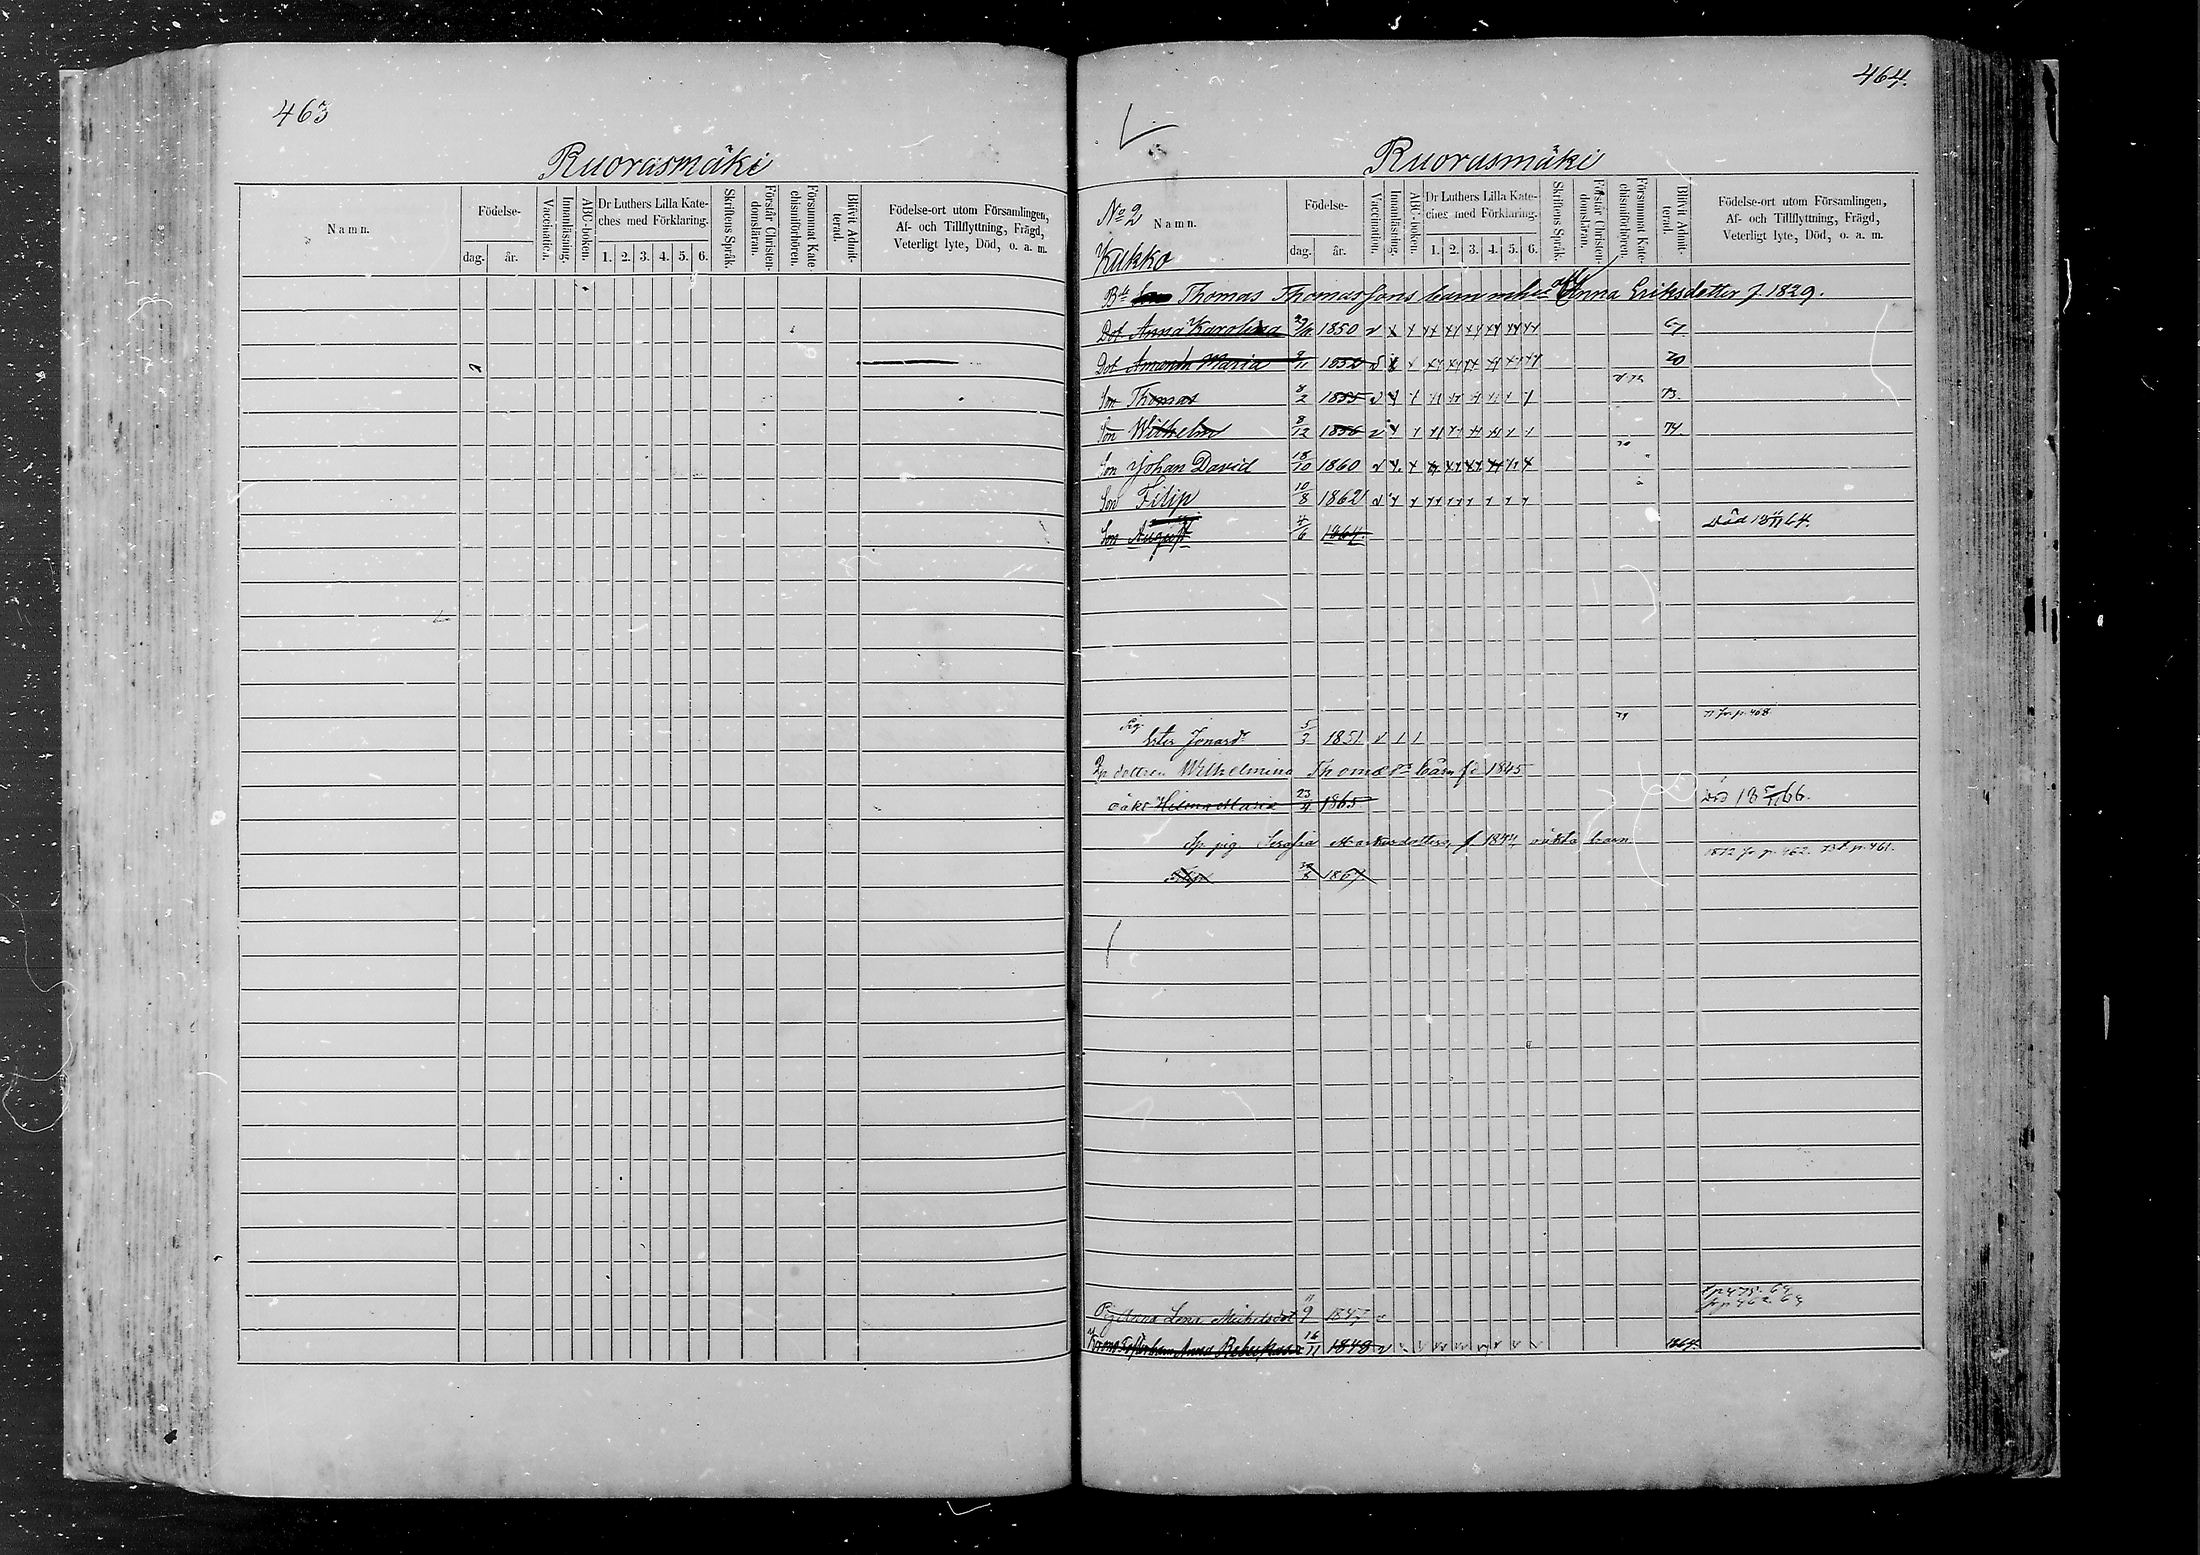 463
Ruorasmäki
Namn.
Födelse-
dag.
år.
Vaccination.
Innanläsning.
ABC-boken.
Dr Luthers Lilla Kate-
ches med Förklaring.
1. 2. 3. 4. 5. 6.
Skriftens Språk.
Förstår Christen-
domsläran.
Försummat Kate-
chismiförhören.
Blifvit Admit-
terad.
Födelse-ort utom Församlingen,
Af- och Tillflyttning, Frägd,
Veterligt lyte, Död, o. a. m.
464.
Ruorasmäki
No 2
Namn.
Kukko
Födelse-
dag.
år.
Vaccination.
Innanläsning.
ABC-boken.
Dr Luthers Lilla Kate-
ches med Förklaring.
1. 2. 3. 4. 5. 6.
Skriftens Språk.
Förstår Christen-
domsläran.
Försummat Kate-
chismiförhören.
Blifvit Admit-
terad.
Födelse-ort utom Församlingen,
Af- och Tillflyttning, Frägd,
Veterligt lyte, Död, o. a. m.
Thomas Thomassons barn Anna Eriksdotter f. 1829.
Dot Anna Karolina 1850 67
Dot Amanda Maria 9/11 1852 70
Son Thomas 8/2 1855 73.
Son Wilhelm 8/12 1856 74.
Son Johan David 18/10 1860
Son Filip 10/8 1862
Son August 4/6 1864. Död 18 64
Pig
Ester Jonasd 5/3 1851 fr. p. 468
dottren Wilhelmina Thomæ barn fd 1845
oäkt Helena Maria 23/4 1865 Död 18 5/11 66.
pig Serafia Markusdotters f. 1844 oäkta barn
1872 fr. p. 462. t. p. 461.
Filip 1867
Anna Lena Mickelsdot 11/9 1847
Anna Rebecka 16/11 1848 1864.